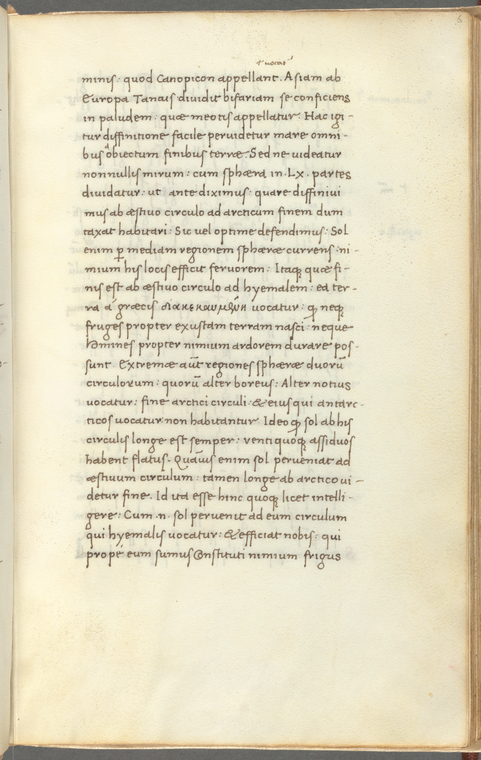 minis: quod Canopicon appellant. Asiam ab
Europa Tanais dividit bifariam se conficiens
in paludem: quæ meotis appellatur. Hac igi-
tur diffinitione facile pervidetur mare omni-
bus obiectum finibus terræ. Sed ne videatur
nonnullis mirum: cum sphæra in .Lx. partes
dividatur: ut ante diximus: quare diffinivi
mus ab æstivo circulo ad arcticum finem dum
taxat habitari: Sic vel optime defendimus: Sol
enim ꝑ mediam regionem sphæræ currens: ni-
mium his locis efficit fervorem: Itaqꝫ quæ fi-
nis est ab æstivo circulo ad hyemalem: ea ter-
ra á græcis διακεκαυμένη vocatur: ꝙ neqꝫ
fruges propter exustam terram nasci: neque
homines propter nimium ardorem durare pos-
sunt. Extremæ aut̃ regiones sphæræ duorũ
circulorum: quorũ alter boreus: Alter notius
vocatur: fine arctici circuli: & eius qui antarc-
ticos vocatur non habitantur. Ideo ꝙ sol ab his
circulis longe est semper: venti quoqꝫ assiduos
habent flatus. Quãvis enim sol perveniat ad
æstivum circulum: tamen longe ab arctico vi-
detur fine. Id ita esse hinc quoqꝫ licet intelli-
gere: Cum .n. sol pervenit ad eum circulum
qui hyemalis vocatur: & efficiat nobis: qui
prope eum sumus constituti nimium frigus